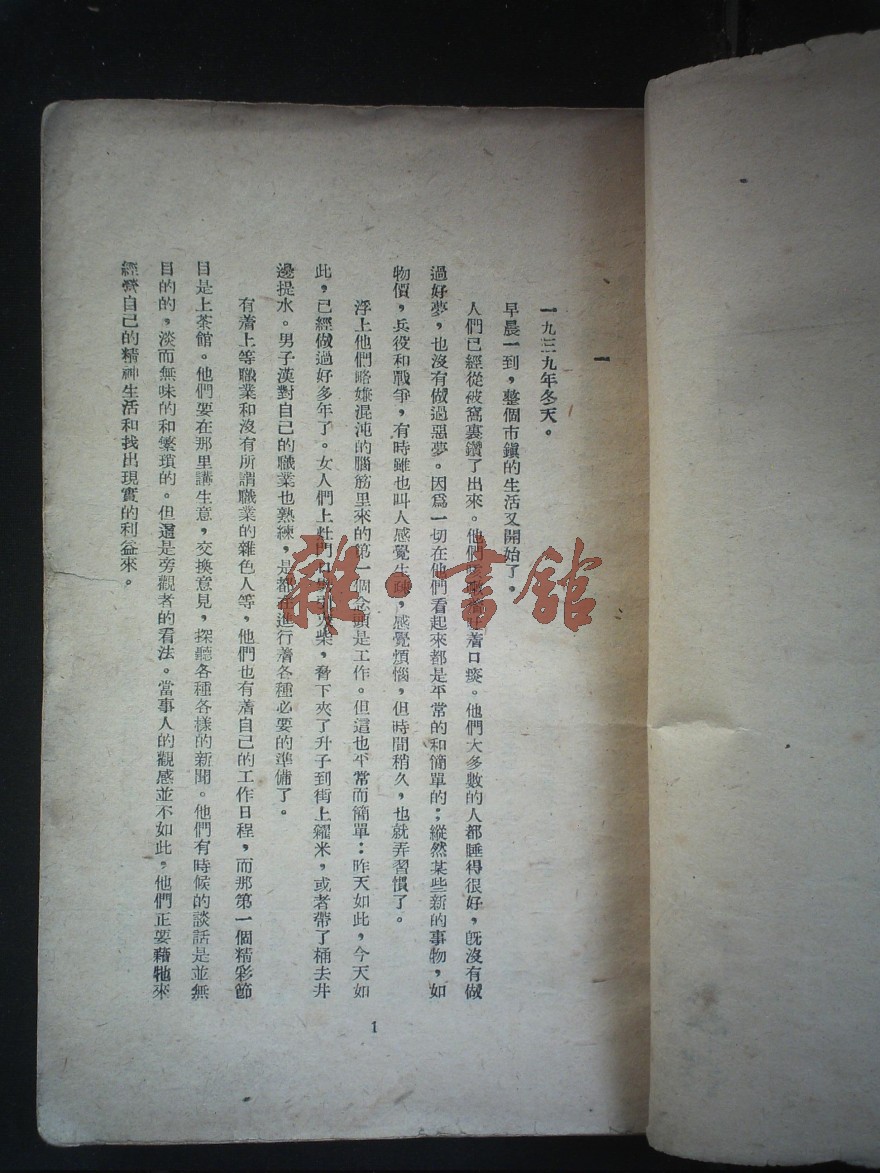 一
一九三九年冬天。
早晨一到，整個市鎮的生活又開始了。
人們已經從被窩裏鑽了出來。他們着口痰。他們大多數的人都睡得很好，旣沒有做
過好夢，也沒有做過惡夢。因爲一切在他們看起來都是平常的和簡單的；縱然某些新的事物，如
物價，兵役和戰爭，有時雖也叫人感覺生疎，感覺煩惱，但時間稍久，也就弄習慣了。
浮上他們略嫌混沌的腦筋里來的第一個念頭是工作。但這也平常而簡單：昨天如此，今天如
此，已經做過好多年了。女人們上灶門口柴，脅下夾了升子到街上糴米，或者帶了桶去井
邊提水。男子漢對自己的職業也熟練，是都在進行着各種必要的準備了。
有着上等職業和沒有所謂職業的雜色人等，他們也有着自己的工作日程，而那第一個精彩節
目是上茶館。他們要在那里講生意，交換意見，探聽各種各樣的新聞。他們有時候的談話是並無
目的的，淡而無味的和繁瑣的。但這是旁觀者的看法。當事人的觀感並不如此，他們正要藉牠來
經營自己的精神生活和找出現實的利益來。
1
雜·書舘